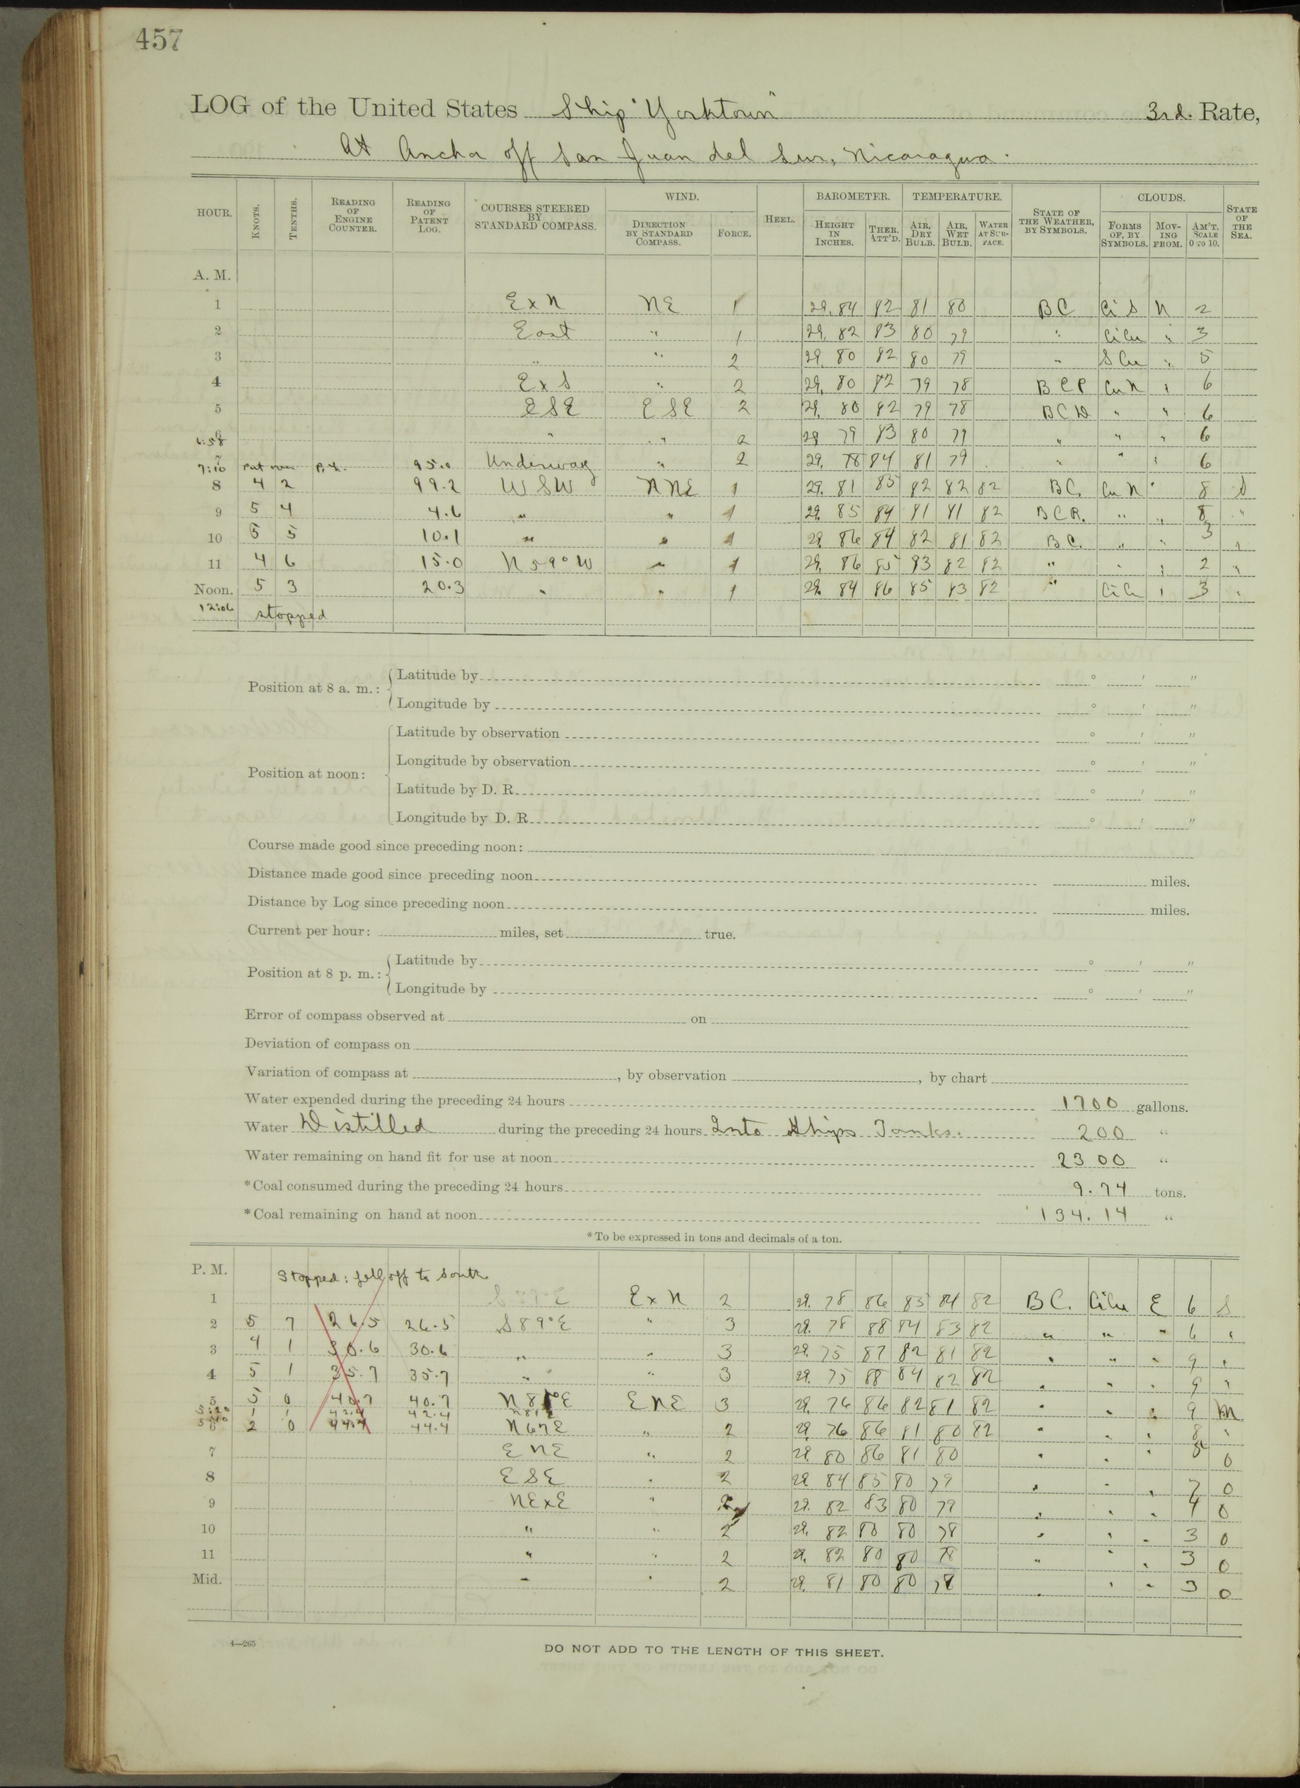 457
LOG of the United States Ship "Yorktown" 3rd. Rate,
At Anchor off San Juan del Sur, Nicaragua.
HOUR. KNOTS. TENTHS. READING OF ENGINE COUNTER. READING OF PATENT LOG. COURSES STEERED BY STANDARD COMPASS. WIND. DIRECTION BY STANDARD COMPASS. FORCE. HEEL. BAROMETER. HEIGHT IN INCHES. THER. ATT'D. TEMPERATURE. AIR, DRY BULB. AIR, WET BULB. WATER AT SURFACE. STATE OF THE WEATHER, BY SYMBOLS. CLOUDS. FORMS OF, BY SYMBOLS. MOVING FROM. AM'T. SCALE 0 TO 10. STATE OF THE SEA.
A. M.
1 E x N NE 1 29.84 82 81 80 BC Ci S N 2
2 East " 1 29.82 83 80 79 " Ci Cu " 3
3 " " 2 29.80 82 80 79 " S Cu " 5
4 E x S " 2 29.80 82 79 78 BCP Cu N " 6
5 ESE ESE 2 29.80 82 79 78 " " 6
6 " " 2 29.79 83 80 79 " " " 6
6:58
7 Underway " 2 29.78 84 81 79 " " " 6
7:10 Put over P.L. 95.0
8 4 2 99.2 WSW NNE 1 29.81 85 82 82 82 BC. Cu N " 8 S
9 5 4 4.6 " " 1 29.85 84 81 81 82 BCR. " " 8 "
10 5 5 10.1 " " 1 29.86 84 82 81 82 BC. " " 3 "
11 4 6 15.0 N 59° W " 1 29.86 85 83 82 82 " " " 2 "
Noon. 5 3 20.3 " " 1 29.84 86 85 83 82 " Ci Cu " 3 "
12:06 stopped
Position at 8 a. m.: Latitude by ° ' "
Longitude by ° ' "
Position at noon: Latitude by observation ° ' "
Longitude by observation ° ' "
Latitude by D. R. ° ' "
Longitude by D. R. ° ' "
Course made good since preceding noon:
Distance made good since preceding noon miles.
Distance by Log since preceding noon miles.
Current per hour: miles, set true.
Position at 8 p. m.: Latitude by ° ' "
Longitude by ° ' "
Error of compass observed at on
Deviation of compass on
Variation of compass at , by observation , by chart
Water expended during the preceding 24 hours 1700 gallons.
Water Distilled during the preceding 24 hours Into Ships Tanks. 200 "
Water remaining on hand fit for use at noon 2300 "
*Coal consumed during the preceding 24 hours 9.74 tons.
*Coal remaining on hand at noon 134.14 "
*To be expressed in tons and decimals of a ton.
P. M. Stopped: fell off to South
1 E x N 2 29.78 86 85 84 82 BC. Ci Cu E 6 S
2 5 7 26.5 26.5 S 89° E " 3 29.78 88 84 83 82 " " " 6 "
3 4 1 30.6 30.6 " " 3 29.75 87 82 81 82 " " " 9 "
4 5 1 35.7 35.7 " " 3 29.75 88 84 82 82 " " " 9 "
5 5 0 40.7 40.7 ENE 3 29.76 86 82 81 82 " " " 9 M
1 42.4 42.4
6 2 0 44.4 44.4 N 67 E " 2 29.76 86 81 80 82 " " " 8 "
7 ENE " 2 29.80 86 81 80 " " " 8 0
8 ESE " 2 29.84 85 80 79 " " " 7 0
9 NE x E " 2 29.82 83 80 79 " " " 4 0
10 " " 2 29.82 80 80 78 " " " 3 0
11 " " 2 29.82 80 80 78 " " " 3 0
Mid. " " 2 29.81 80 80 78 " " " 3 0
4—265
DO NOT ADD TO THE LENGTH OF THIS SHEET.